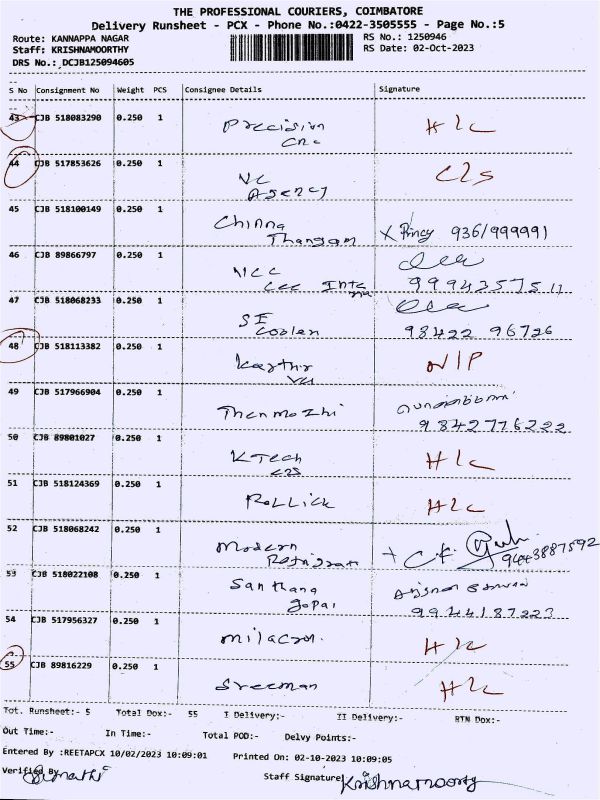 THE PROFESSIONAL COURIERS, COIMBATORE
Delivery Runsheet - PCX - Phone No.:0422-3505555 - Page No.:5
Route: KANNAPPA NAGAR RS No.: 1250946
Staff: KRISHNAMOORTHY RS Date: 02-Oct-2023
DRS No.: DCJB125094605
S No Consignment No Weight PCS Consignee Details Signature
43 CJB 518083290 0.250 1 Precision H2C
CNC
44 CJB 517853626 0.250 1 VC C2S
Agency
45 CJB 518100149 0.250 1 Chinna
Thangam X Princy 936/999991
46 CJB 89866797 0.250 1 NCC
Inte 9994357511
47 CJB 518068233 0.250 1 SE
Coolen 98422 96726
48 CJB 518113382 0.250 1 Karthi N/P
49 CJB 517966904 0.250 1 Thenmozhi
9842776222
50 CJB 89801027 0.250 1 KTech H2C
51 CJB 518124369 0.250 1 Rollick H2C
52 CJB 518068242 0.250 1 Modern
Refrigrati 9443887592
53 CJB 518022108 0.250 1 Santhana
gopal 9944187223
54 CJB 517956327 0.250 1 Milacron. H2C
55 CJB 89816229 0.250 1 Sreeman H2C
Tot. Runsheet:- 5 Total Dox:- 55 I Delivery:- II Delivery:- RTN Dox:-
Out Time:- In Time:- Total POD:- Delvy Points:-
Entered By :REETAPCX 10/02/2023 10:09:01 Printed On: 02-10-2023 10:09:05
Verified By Staff Signature Krishnamoorty